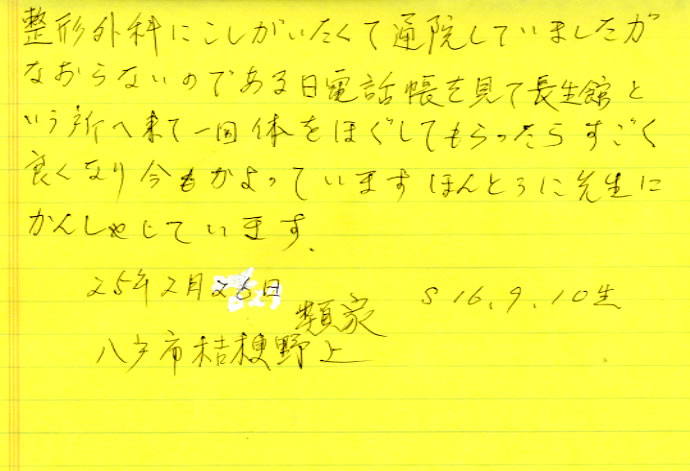 整形外科にこしがいたくて通院していましたが
なおらないのである日電話帳を見て長生館と
いう所へ来て一回体をほぐしてもらったらすごく
良くなり今もかよっていますほんとうに先生に
かんしゃしています.
25年2月26日 S16.9.10生
類家
八戸市桔梗野上